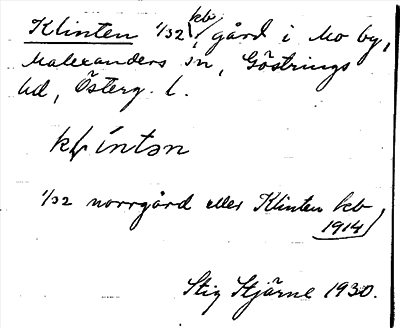 Klinten 1/32 kb, gård i Mo by,
Malexanders sn, Göstrings
hd, Österg. l.
klintən
1/32 norrgård eller Klinten kb
1914
Stig Stjärne 1930.